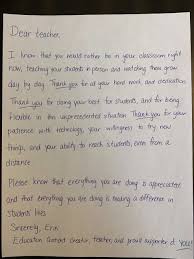 Dear teacher,
I know that you would rather be in your classroom right
now, teaching your students in person and watching them grow
day by day. Thank you for all your hard work and dedication.
Thank you for doing your best for students, and for being
flexible in this unprecedented situation. Thank you for your
patience with technology, your willingness to try new
things, and your ability to reach students, even from a
distance.
Please know that everything you are doing is appreciated
and that everything you are doing is making a difference in
students' lives.
Sincerely, Erin
Education content creator, teacher, and proud supporter of YOU!